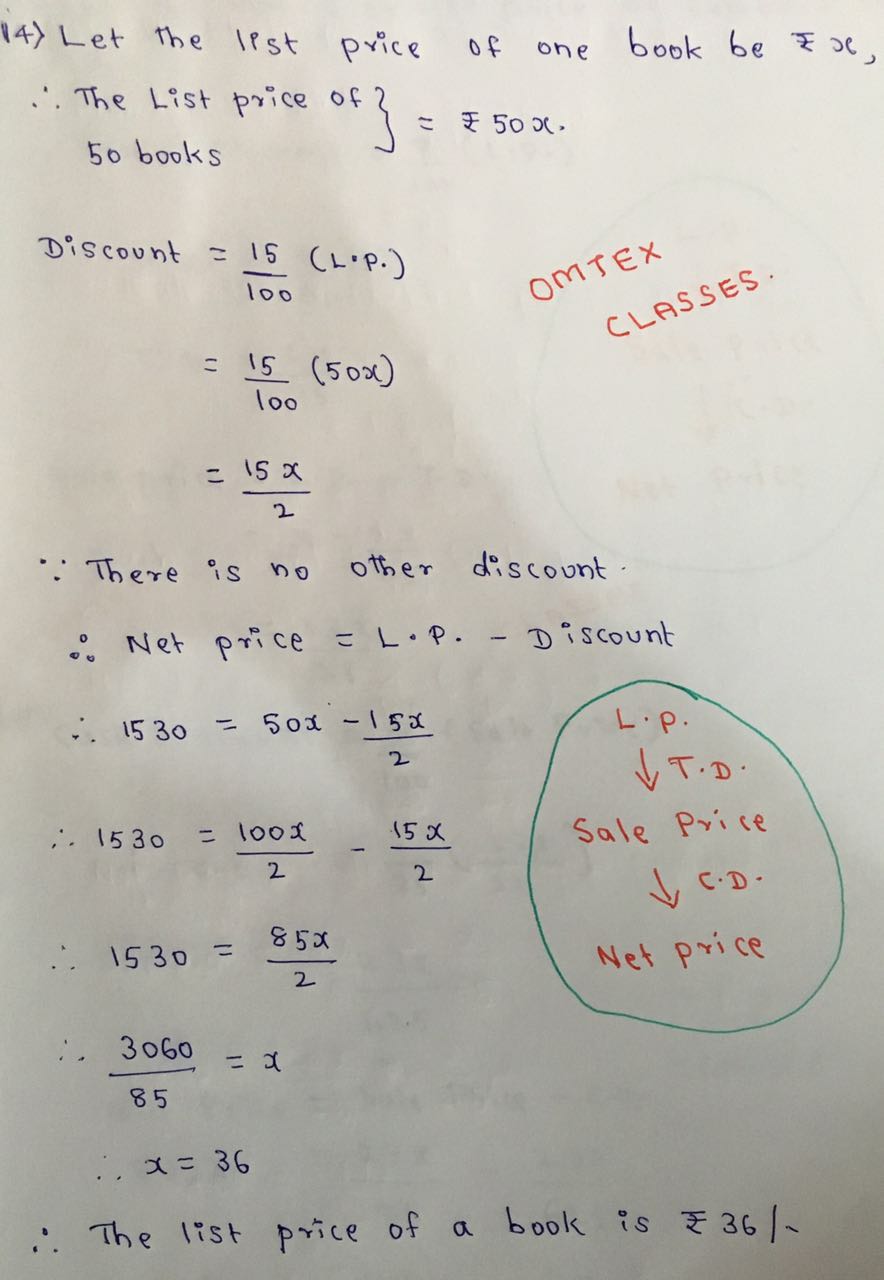 14) Let the list price of one book be ₹ x,
∴ The List price of } = ₹ 50x.
50 books
Discount = 15/100 (L.P.)
OMTEX
CLASSES.
= 15/100 (50x)
= 15x/2
∵ There is no other discount.
∴ Net price = L.P. - Discount
∴ 1530 = 50x - 15x/2
∴ 1530 = 100x/2 - 15x/2
∴ 1530 = 85x/2
∴ 3060/85 = x
∴ x = 36
∴ The list price of a book is ₹ 36/-
L.P.
↓ T.D.
Sale Price
↓ C.D.
Net price